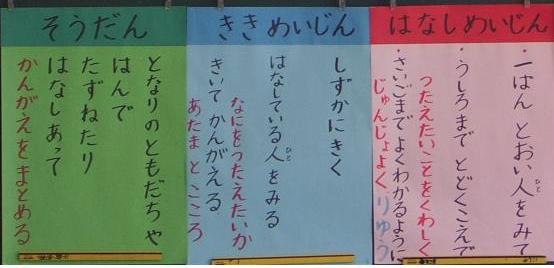 はなしめいじん
・一ばん とおい人をみて
ひと
・うしろまで とどくこえで
つたえたいことをくわしく
・さいごまで よくわかるように
じゅんじょよく りゆう
ききめいじん
しずかにきく
はなしている人をみる
ひと
なにをつたえたいか
きいて かんがえる
あたま と こころ
そうだん
となりのともだちや
はんで
たずねたり
はなしあって
かんがえをまとめる